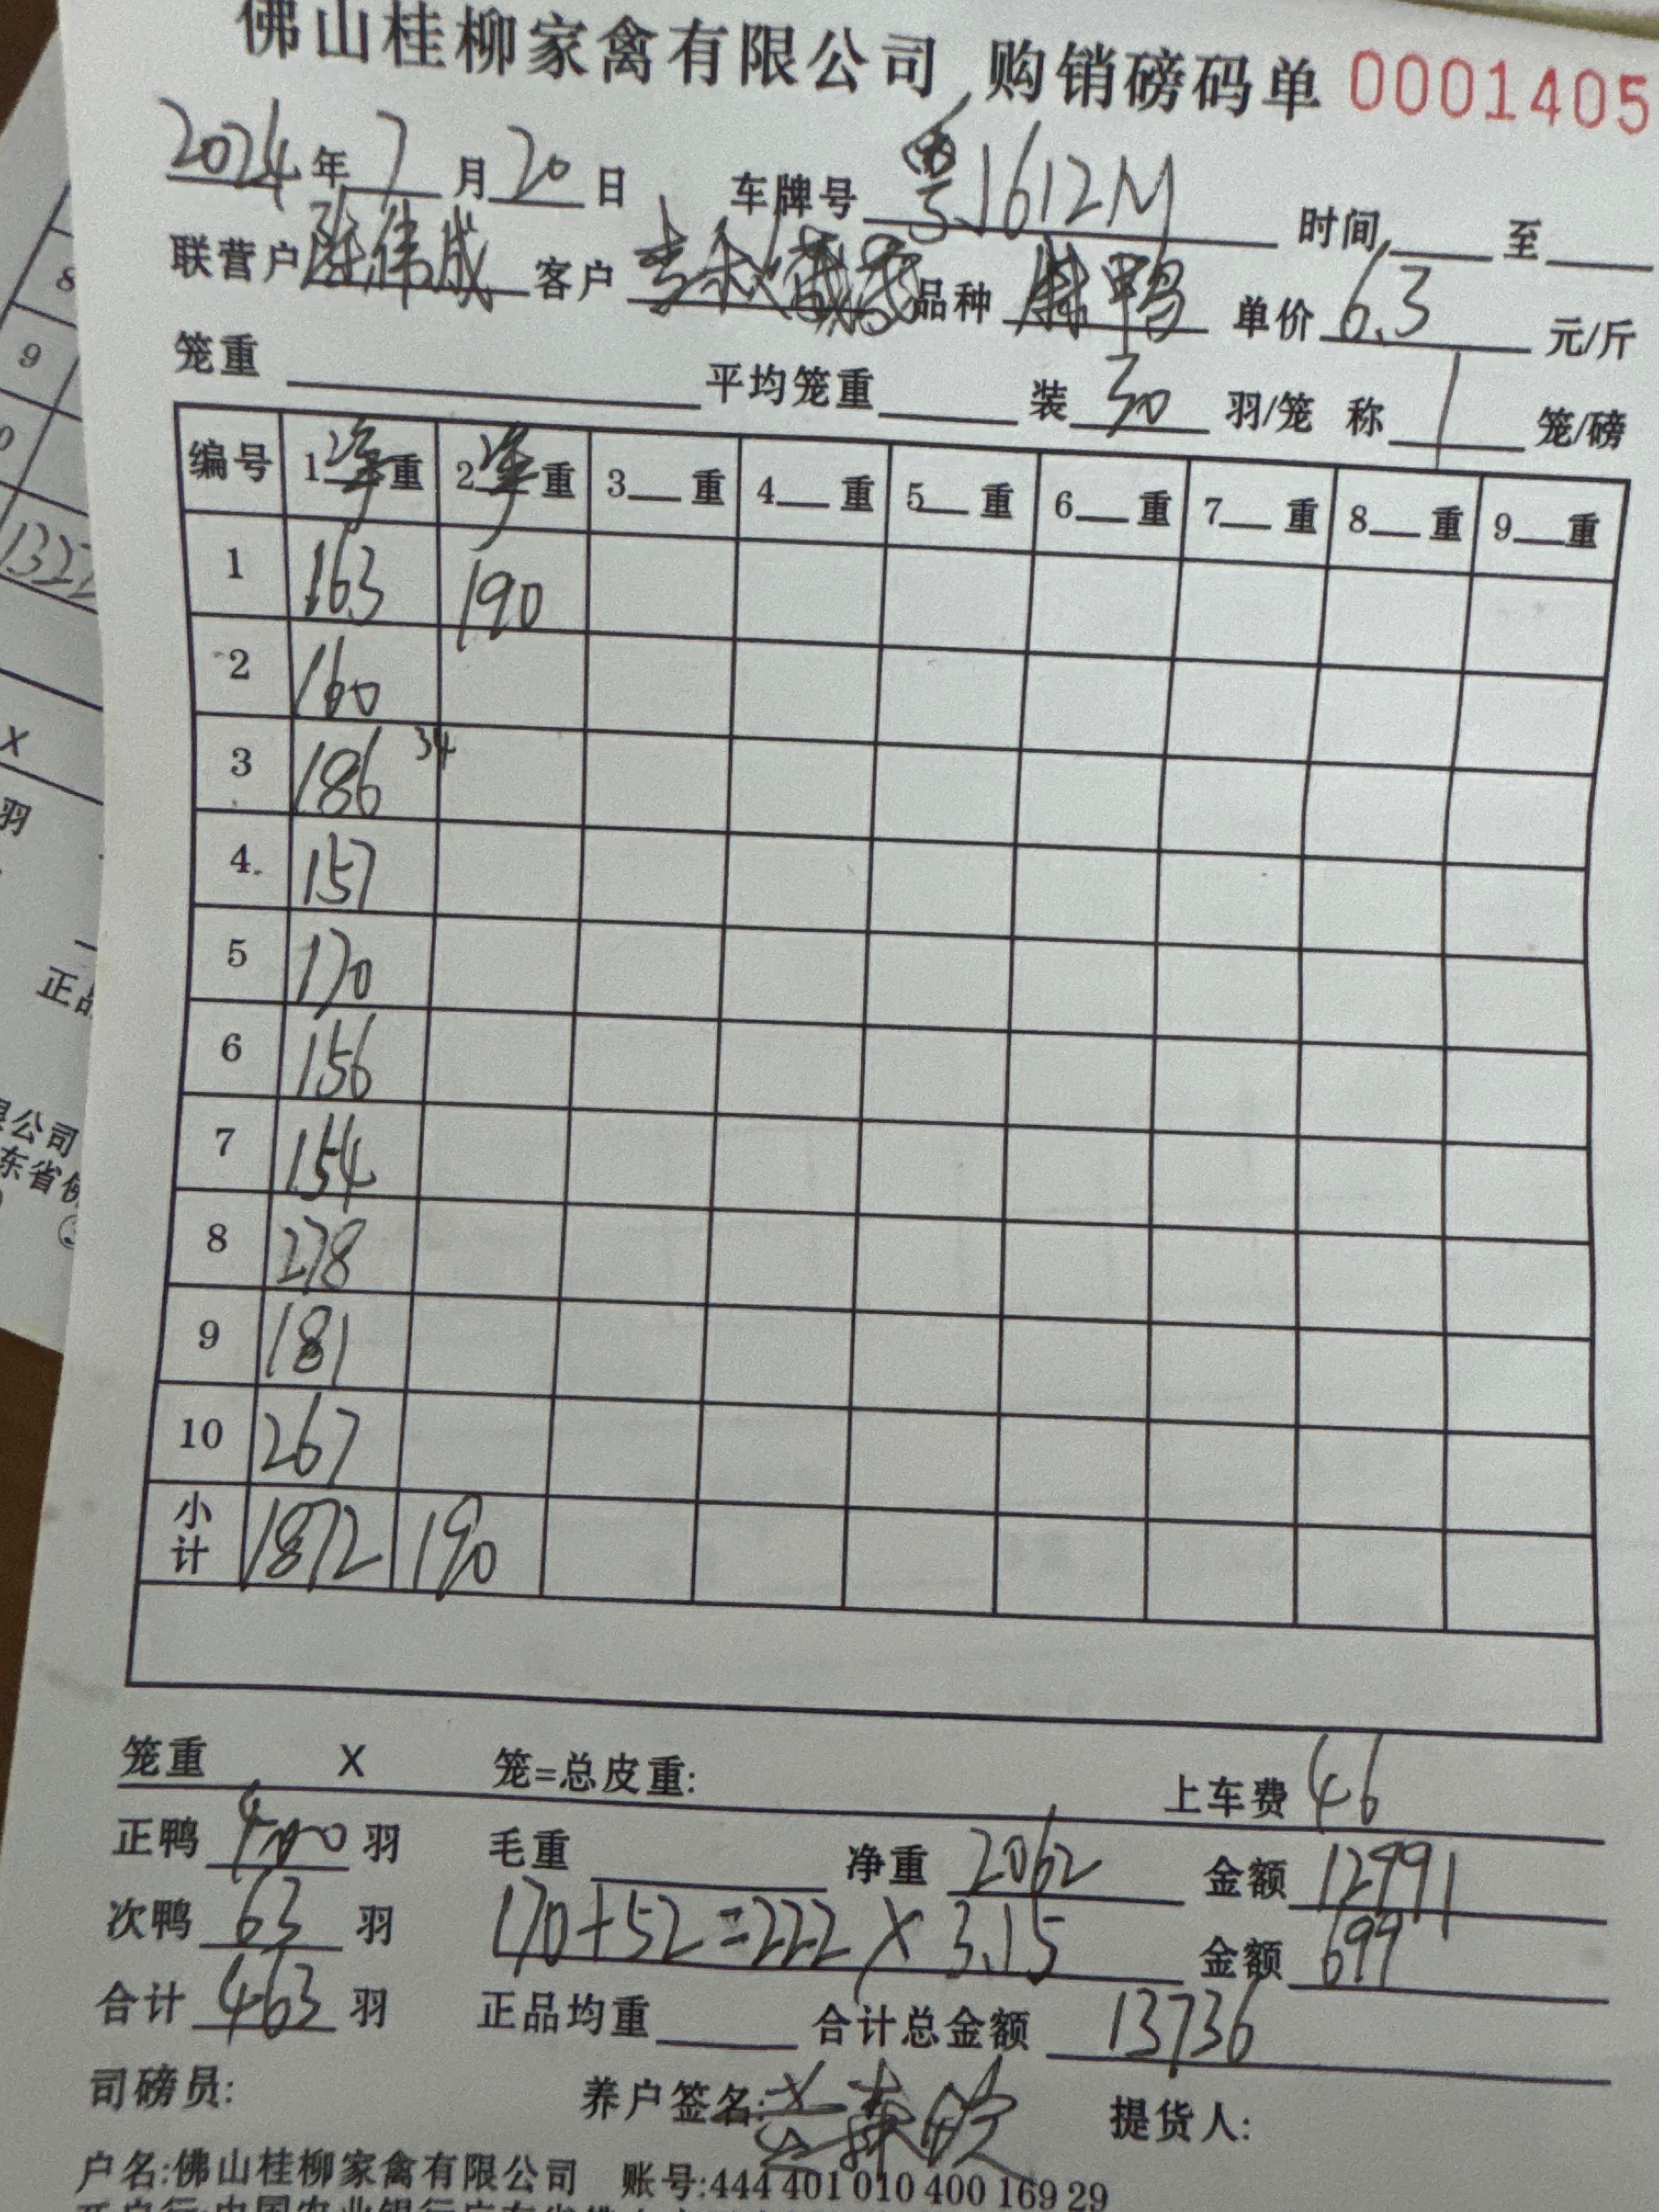 佛山桂柳家禽有限公司 购销磅码单 0001405
2024年7月20日 车牌号 粤J1612M 时间 至
联营户 陈伟成 客户 品种 麻鸭 单价 6.3 元/斤
笼重 平均笼重 装 30 羽/笼 称 1 笼/磅
编号 1净重 2净重 3__重 4__重 5__重 6__重 7__重 8__重 9__重
1 163 190
2 160
3 186 34
4. 157
5 170
6 156
7 154
8 278
9 181
10 267
小计 1872 190
笼重 X 笼=总皮重: 上车费 46
正鸭 400 羽 毛重 净重 2062 金额 12991
次鸭 63 羽 170+52=222 X 3.15 金额 699
合计 463 羽 正品均重 合计总金额 13736
司磅员: 养户签名: 提货人:
户名:佛山桂柳家禽有限公司 账号:444 401 010 400 169 29
8
9
0
1322
X
羽
正品
限公司
东省佛